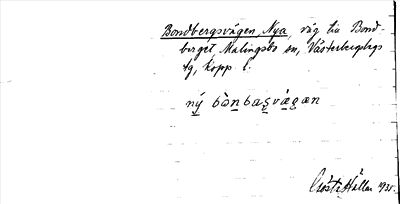 Bondbergsvägen, Nya, väg till Bond-
berget, Malingsbo sn, Västerbergslags
tg, Kopp. l.
ný
Gösta Hallen 1935.